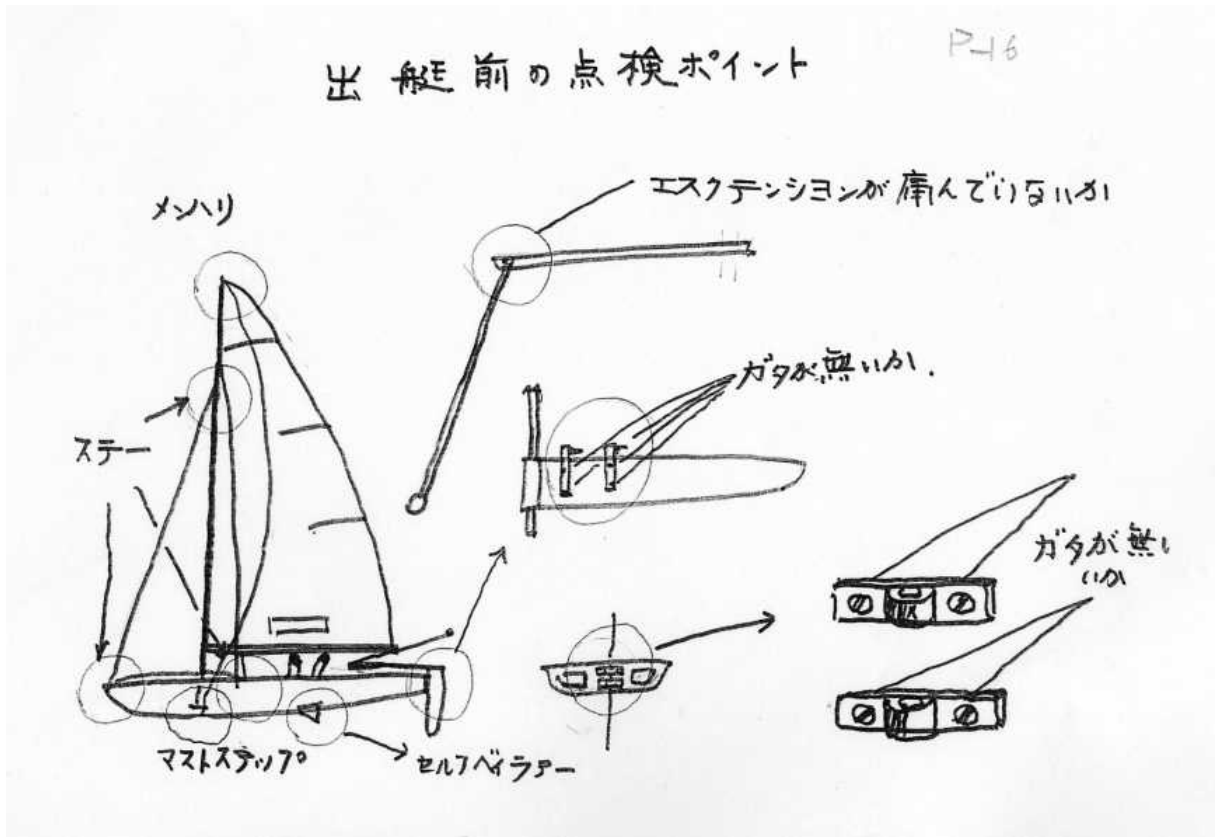 P-16
出艇前の点検ポイント
メンハリ
エスクテンションが痛んでいないか
ガタが無いか.
ステー
ガタが無い
いか
マストステップ
セルフベイラァー